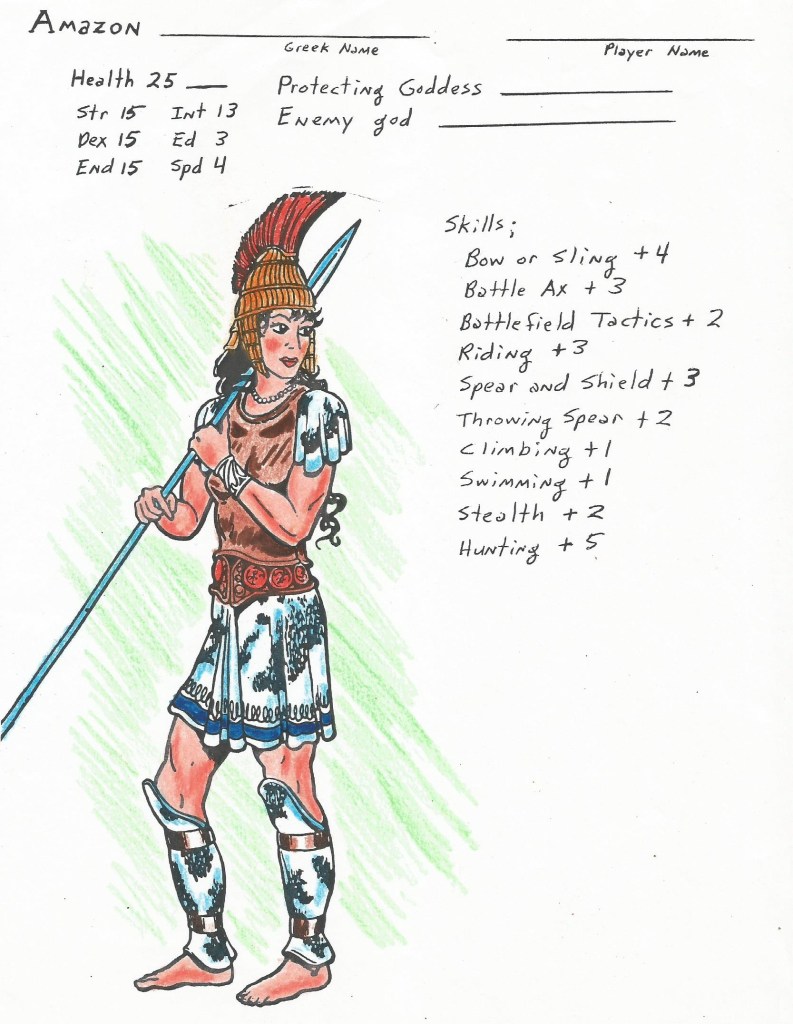 Amazon
Greek Name
Player Name
Health 25
Protecting Goddess
Str 15 Int 13
Enemy god
Dex 15 Ed 3
End 15 Spd 4
Skills;
Bow or Sling +4
Battle Ax +3
Battlefield Tactics +2
Riding +3
Spear and Shield +3
Throwing Spear +2
Climbing +1
Swimming +1
Stealth +2
Hunting +5